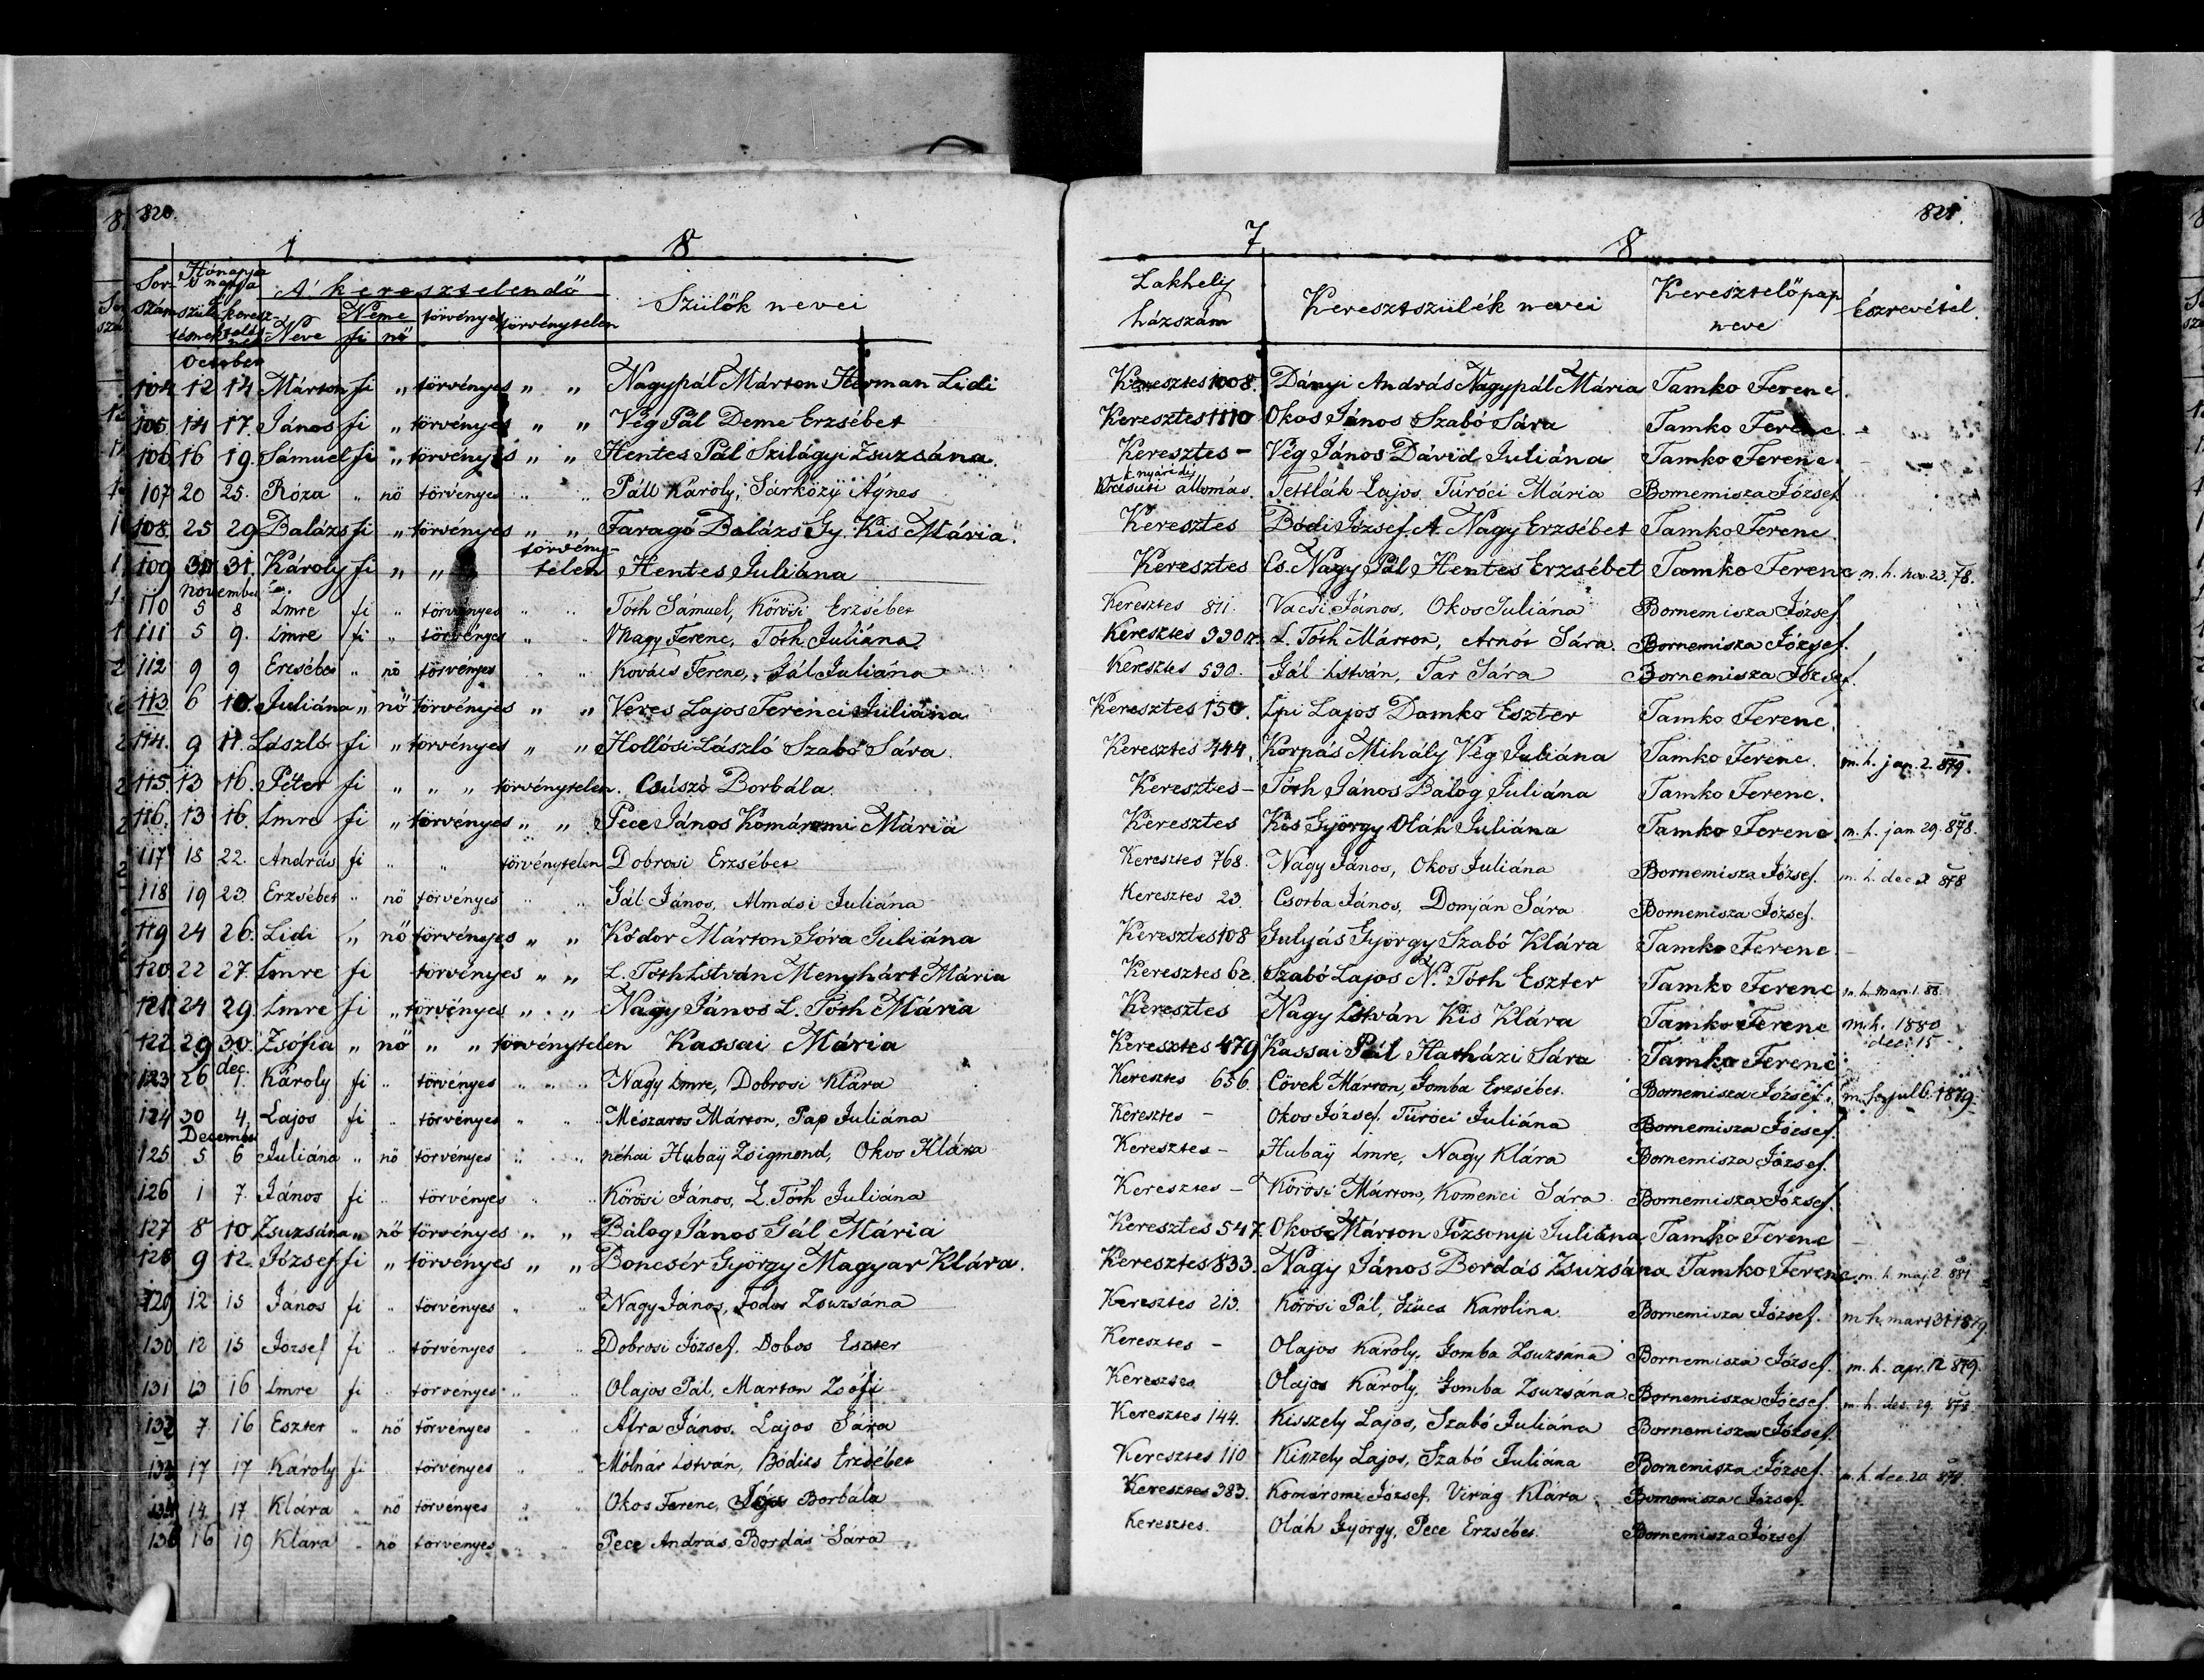 820.
1 8
7 8
821.
Sor- szám Hónapja 's napja születésnek keresztelésnek A' keresztelendő Neve Neme fi nő törvényes törvénytelen Szülők nevei Lakhely házszám Keresztszülék nevei Keresztelő pap neve Észrevétel.
October
104 12 14 Márton fi " törvényes " " Nagypál Márton Herman Lidi Keresztes 1008. Dányi András Nagypál Mária Tamko Ferenc.
105 14 17. János fi " törvényes " " Vég Pál Deme Erzsébet Keresztes 1110 Okos János Szabó Sára Tamko Ferenc -
106 16 19. Sámuel fi " törvényes " " Hentes Pál Szilágyi Zsuzsána. Keresztes - Vég János Dávid Juliána Tamko Ferenc. -
107 20 25. Róza " nö törvényes " " Páll Károly, Sárközy Ágnes k nyárádi vasuti állomás. Tettlák Lajos Túróci Mária Bornemisza József
108. 25 29 Balázs fi " törvényes " " Faragó Balázs Gy. Kis Mária. Keresztes Bódi József. A. Nagy Erzsébet Tamko Ferenc.
109 30 31. Károly fi " " törvény- telen Hentes Juliána Keresztes Cs. Nagy Pál Hentes Erzsébet Tamko Ferenc m. h. nov. 23. 78.
november
110 5 8 Imre fi " törvényes " " Tóth Sámuel, Körösi Erzsébet Keresztes 811. Vacsi János, Okos Juliána Bornemisza József.
111 5 9. Imre fi " törvényes " " Nagy Ferenc, Tóth Juliána. Keresztes 990 L. Tóth Márton, Arnót Sára. Bornemisza József.
112 9 9 Erzsébet " nö törvényes " " Kovács Ferenc, Gál Juliána Keresztes 590. Gál István, Tar Sára Bornemisza József.
113 6 10. Juliána " nö törvényes " " Veres Lajos Ferenci Juliána Keresztes 150. Ipi Lajos Damko Eszter Tamko Ferenc.
114. 9 11. László fi " törvényes " " Hollósi László Szabó Sára. Keresztes 444. Korpás Mihály Vég Juliána Tamko Ferenc. m. h. jan. 2. 879.
115. 13 16. Péter fi " " " törvénytelen. Csúszó Borbála. Keresztes - Tóth János Balog Juliána Tamko Ferenc.
116. 13 16. Imre fi " törvényes " " Pece János Komáromi Mária Keresztes Kis György Oláh Juliána Tamko Ferenc. m. h. jan 29. 878.
117 18 22. András fi " " törvénytelen Dobrosi Erzsébet Keresztes 768. Nagy János, Okos Juliána Bornemisza József. m. h. dec 2 878
118 19 23. Erzsébet " nö törvényes " " Gál János, Almási Juliána Keresztes 23. Csorba János, Domján Sára Bornemisza József.
119 24 26. Lidi " nö törvényes " " Kódor Márton Góra Juliána Keresztes 108 Gulyás György Szabó Klára Tamko Ferenc. -
120. 22 27. Imre fi törvényes " " L. Tóth István Menyhárt Mária Keresztes 62. Szabó Lajos N. Tóth Eszter Tamko Ferenc m. h. marc. 1. 88.
121 24 29. Imre fi " törvényes " " Nagy János L. Tóth Mária Keresztes Nagy István Kis Klára Tamko Ferenc m. h. 1880 dec. 15
122. 29 30. Zsófia " nö " " törvénytelen Kassai Mária Keresztes 479 Kassai Pál Harházi Sára Tamko Ferenc
dec.
123 26 1. Károly fi " törvényes " " " Nagy Imre, Dobrosi Klára Keresztes 656. Cövek Márton, Gomba Erzsébet. Bornemisza József. m. h. jul 6. 1879.
124 30 4. Lajos fi " törvényes " " Mészaros Márton, Pap Juliána Keresztes - Okos József. Túróci Juliána Bornemisza József.
December
125 5 6 Juliána " nö törvényes " " néhai Hubay Zsigmond, Okos Klára Keresztes - Hubay Imre, Nagy Klára Bornemisza József.
126 1 7. János fi " törvényes " " Körösi János, L. Tóth Juliána Keresztes - Körösi Márton, Komenci Sára Bornemisza József.
127 8 10 Zsuzsána " nö törvényes " " Balog János Gál Mária Keresztes 547 Okos Márton Pozsonyi Juliána Tamko Ferenc
128 9 12. József fi " törvényes " " Boncsér György Magyar Klára. Keresztes 833. Nagy János Bordás Zsuzsána Tamko Ferenc. m. h. maj. 2. 881
129 12 15 János fi " törvényes " " Nagy János, Zsuzsána Keresztes 213. Körösi Pál, Szücs Karolina. Bornemisza József. m h. mart 31 1879
130 12 15 József fi " törvényes " " Dobrosi József. Dobos Eszter Keresztes - Olajos Károly, Gomba Zsuzsána Bornemisza József. m. h. apr. 12 879.
131 13 16 Imre fi " törvényes " " Olajos Pál, Marton Zsófi Keresztes Olajos Károly, Gomba Zsuzsána Bornemisza József. m. h. dec. 29. 878.
132 7 16 Eszter " nö törvényes " " Átra János. Lajos Sára Keresztes 144. Kisszely Lajos, Szabó Juliána Bornemisza József.
133 17 17 Károly fi " törvényes " " Molnár István, Bódits Erzsébet Keresztes 110 Kiszely Lajos, Szabó Juliána Bornemisza József. m. h. dec. 20. 878.
134 14 17 Klára " nö törvényes " " Okos Ferenc, Borbála Keresztes 383. Komáromi József, Virág Klára Bornemisza József.
136 16 19 Klára " nö törvényes " " Pece András, Bordás Sára Keresztes. Oláh György, Pece Erzsébet. Bornemisza József.